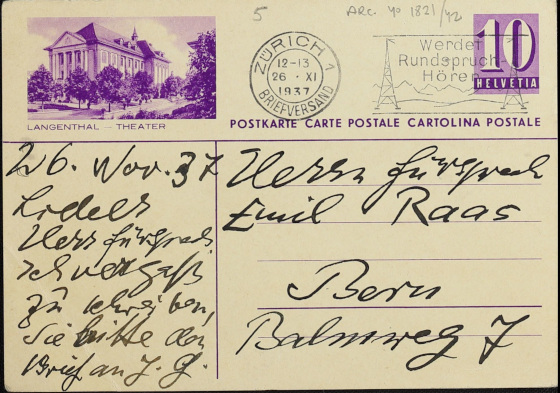 5
ARC. 40 1821/42
ZÜRICH 1
12-13
26. XI
1937
BRIEFVERSAND
Werdet
Rundspruch-
Hörer
10
HELVETIA
LANGENTHAL — THEATER
POSTKARTE CARTE POSTALE CARTOLINA POSTALE
26. Nov. 37
Herr Fürsprech
ich vergaß
zu schreiben,
Sie bitte den
Brief an J. G.
Herrn Fürsprech
Emil Raas
Bern
Balmweg 7